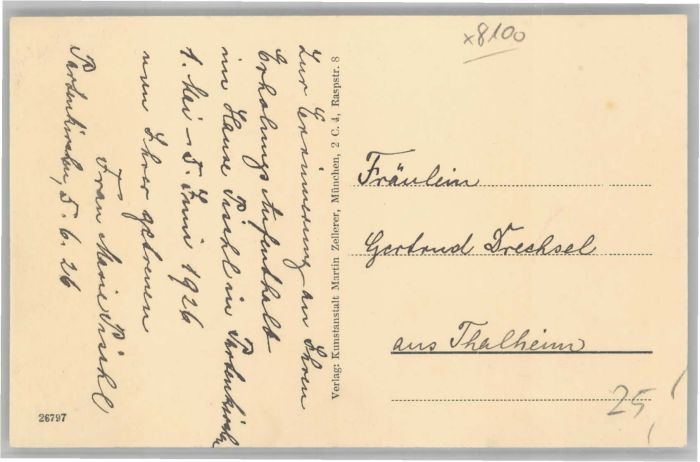 Zur Erinnerung an Ihren
Erholungs Aufenthalt
im Hause Pischl in Partenkirchen
1. Mai - 5. Juni 1926
von Ihrer getreuen
Frau Marie Pischl
Partenkirchen, 5. 6. 26
Verlag: Kunstanstalt Martin Zellerer, München, 2 C. 4, Raspstr. 8
x8100
Fräulein
Gertrud Drechsel
aus Thalheim
25
26797